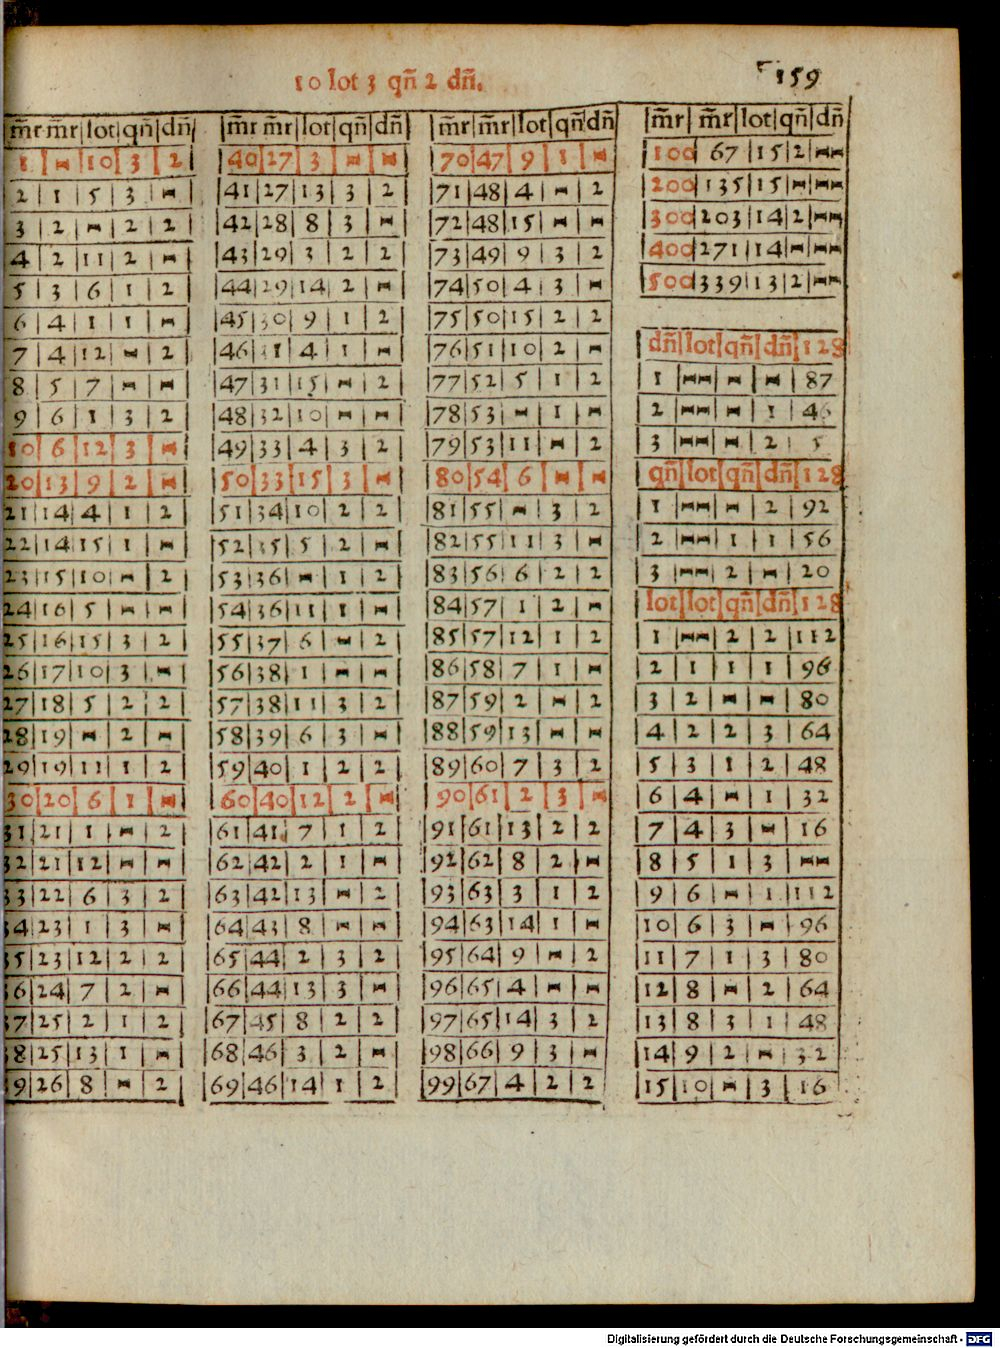 10 lot 3 qñ 2 dñ.
159
m̃r|m̃r|lot|qñ|dñ
1|-|10|3|2
2|1|5|3|-
3|2|-|2|2
4|2|11|2|-
5|3|6|1|2
6|4|1|1|-
7|4|12|-|2
8|5|7|-|-
9|6|1|3|2
10|6|12|3|-
20|13|9|2|-
21|14|4|1|2
22|14|15|1|-
23|15|10|-|2
24|16|5|-|-
25|16|15|3|2
26|17|10|3|-
27|18|5|2|2
28|19|-|2|-
29|19|11|1|2
30|20|6|1|-
31|21|1|-|2
32|21|12|-|-
33|22|6|3|2
34|23|1|3|-
35|23|12|2|2
36|24|7|2|-
37|25|2|1|2
38|25|13|1|-
39|26|8|-|2
m̃r|m̃r|lot|qñ|dñ
40|27|3|-|-
41|27|13|3|2
42|28|8|3|-
43|29|3|2|2
44|29|14|2|-
45|30|9|1|2
46|31|4|1|-
47|31|15|-|2
48|32|10|-|-
49|33|4|3|2
50|33|15|3|-
51|34|10|2|2
52|35|5|2|-
53|36|-|1|2
54|36|11|1|-
55|37|6|-|2
56|38|1|-|-
57|38|11|3|2
58|39|6|3|-
59|40|1|2|2
60|40|12|2|-
61|41|7|1|2
62|42|2|1|-
63|42|13|-|2
64|43|8|-|-
65|44|2|3|2
66|44|13|3|-
67|45|8|2|2
68|46|3|2|-
69|46|14|1|2
m̃r|m̃r|lot|qñ|dñ
70|47|9|1|-
71|48|4|-|2
72|48|15|-|-
73|49|9|3|2
74|50|4|3|-
75|50|15|2|2
76|51|10|2|-
77|52|5|1|2
78|53|-|1|-
79|53|11|-|2
80|54|6|-|-
81|55|-|3|2
82|55|11|3|-
83|56|6|2|2
84|57|1|2|-
85|57|12|1|2
86|58|7|1|-
87|59|2|-|2
88|59|13|-|-
89|60|7|3|2
90|61|2|3|-
91|61|13|2|2
92|62|8|2|-
93|63|3|1|2
94|63|14|1|-
95|64|9|-|2
96|65|4|-|-
97|65|14|3|2
98|66|9|3|-
99|67|4|2|2
m̃r|m̃r|lot|qñ|dñ
100|67|15|2|--
200|135|15|-|--
300|203|14|2|--
400|271|14|-|--
500|339|13|2|--
dñ|lot|qñ|dñ|128
1|--|-|-|87
2|--|-|1|46
3|--|-|2|5
qñ|lot|qñ|dñ|128
1|--|-|2|92
2|--|1|1|56
3|--|2|-|20
lot|lot|qñ|dñ|128
1|--|2|2|112
2|1|1|1|96
3|2|-|-|80
4|2|2|3|64
5|3|1|2|48
6|4|-|1|32
7|4|3|-|16
8|5|1|3|--
9|6|-|1|112
10|6|3|-|96
11|7|1|3|80
12|8|-|2|64
13|8|3|1|48
14|9|2|-|32
15|10|-|3|16
Digitalisierung gefördert durch die Deutsche Forschungsgemeinschaft - DFG